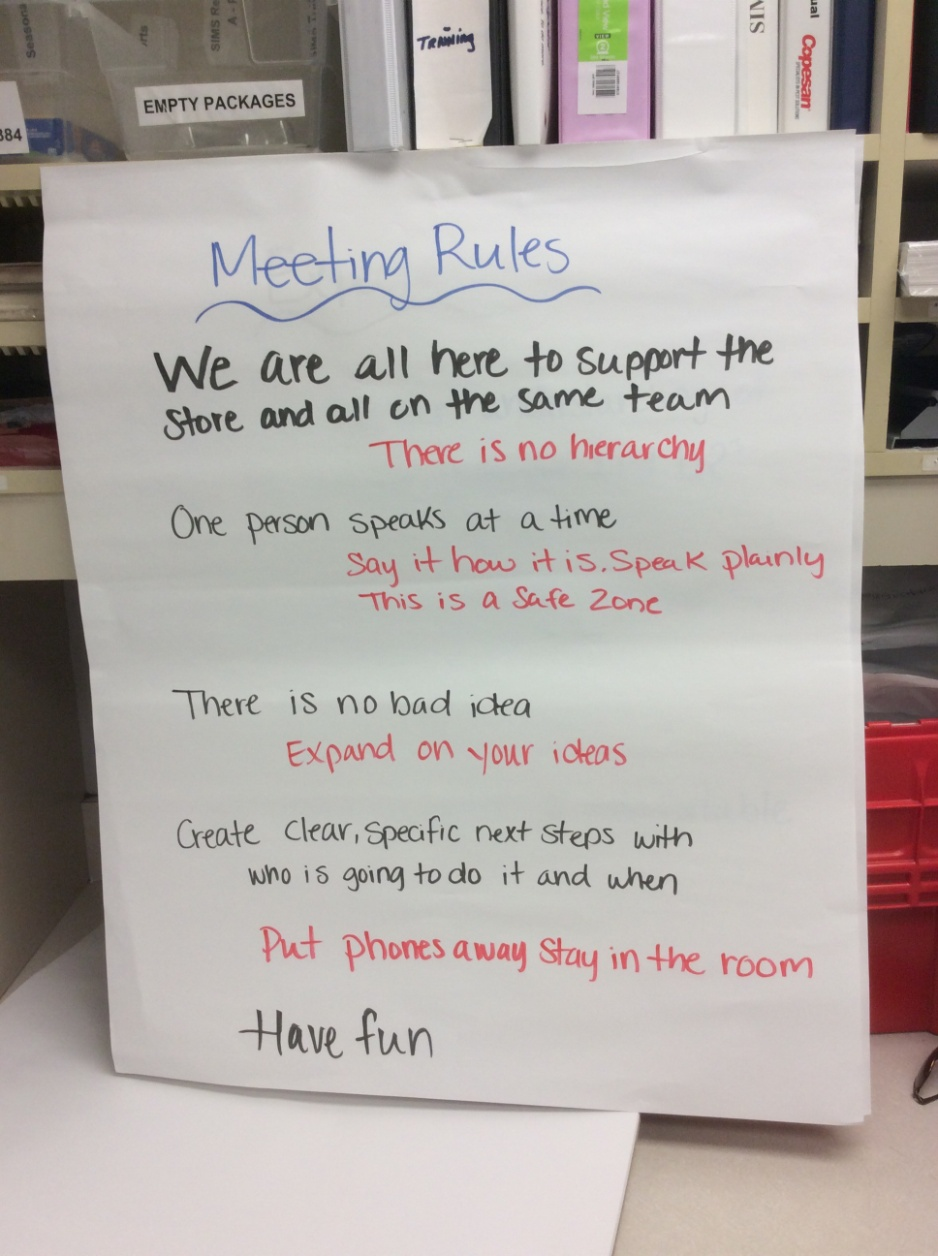 Seasona
SIMS Re
A - F
EMPTY PACKAGES
384
Training
Copesan
Meeting Rules
We are all here to support the
store and all on the same team
There is no hierarchy
One person speaks at a time
Say it how it is. Speak plainly
This is a safe zone
There is no bad idea
Expand on your ideas
Create clear, specific next steps with
who is going to do it and when
Put phones away Stay in the room
Have fun